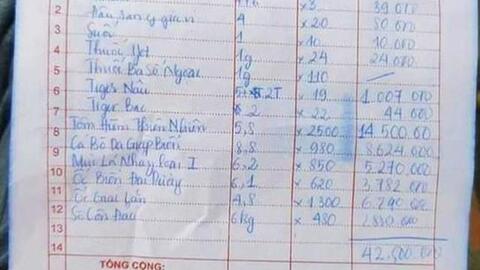 2 × 3 39.000
3 4 × 20 80.000
4 Suối 1 × 10 10.000
5 Thuốc Jet 1g × 24 24.000
6 Thuốc Ba Số Ngoại 1g × 110
7 Tiger Nâu 5+ 2T × 19 1.007.000
8 Tiger Bạc 2 × 22 44.000
9 Tôm Hùm Thiên Nhiên 5,8 × 2500 14.500.00
10 Cá Bò Da Giáp Biển 8,8 × 980 8.624.000
11 Mực Lá Nháy loại I 6,2 × 850 5.270.000
12 Ốc Biển 6,1 × 620 3.782.000
13 Ốc 4,8 × 1300
14 Sò Côn Đảo 6kg × 480
42.500.000
TỔNG CỘNG: